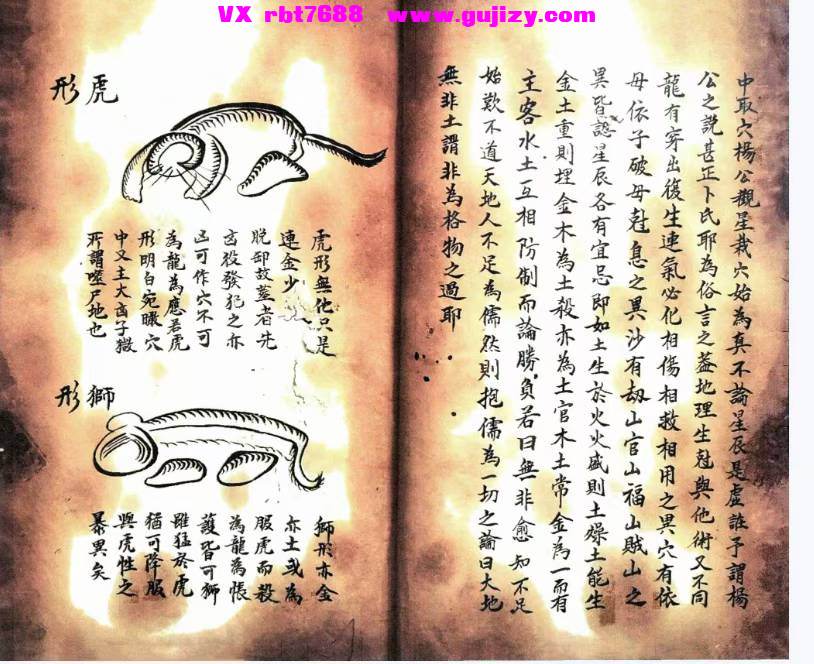 VX rbt7688 www.gujizy.com
中取穴楊公觀星裁穴始為真不論星辰是虛誰予謂楊
公之說甚正卜氏耶為俗言之蓋地理生尅與他術又不同
龍有穿出後生連氣必化相傷相救相用之異穴有依
母依子破母尅息之異沙有劫山官山福山賊山之
異皆認星辰各有宜忌即如土生於火火盛則土燥土能生
金土重則埋金木為土殺亦為土官木土常金為一而有
主客水土互相防制而論勝負若曰無非愈知不足
始歎不道天地人不足為儒然則抱儒為一切之論曰大地
無非土謂非為格物之過耶
虎形
虎形無他只是
連金少
脫卸故葢者先
凶殺發犯之亦
凶可作穴不可
為龍為應若虎
形明白宛曬穴
中又主大凶子微
所謂噬尸地也
獅形
獅形亦金
亦土或為
服虎而殺
為龍為帳
護皆可獅
雖猛於虎
猶可降服
與虎性之
暴異矣